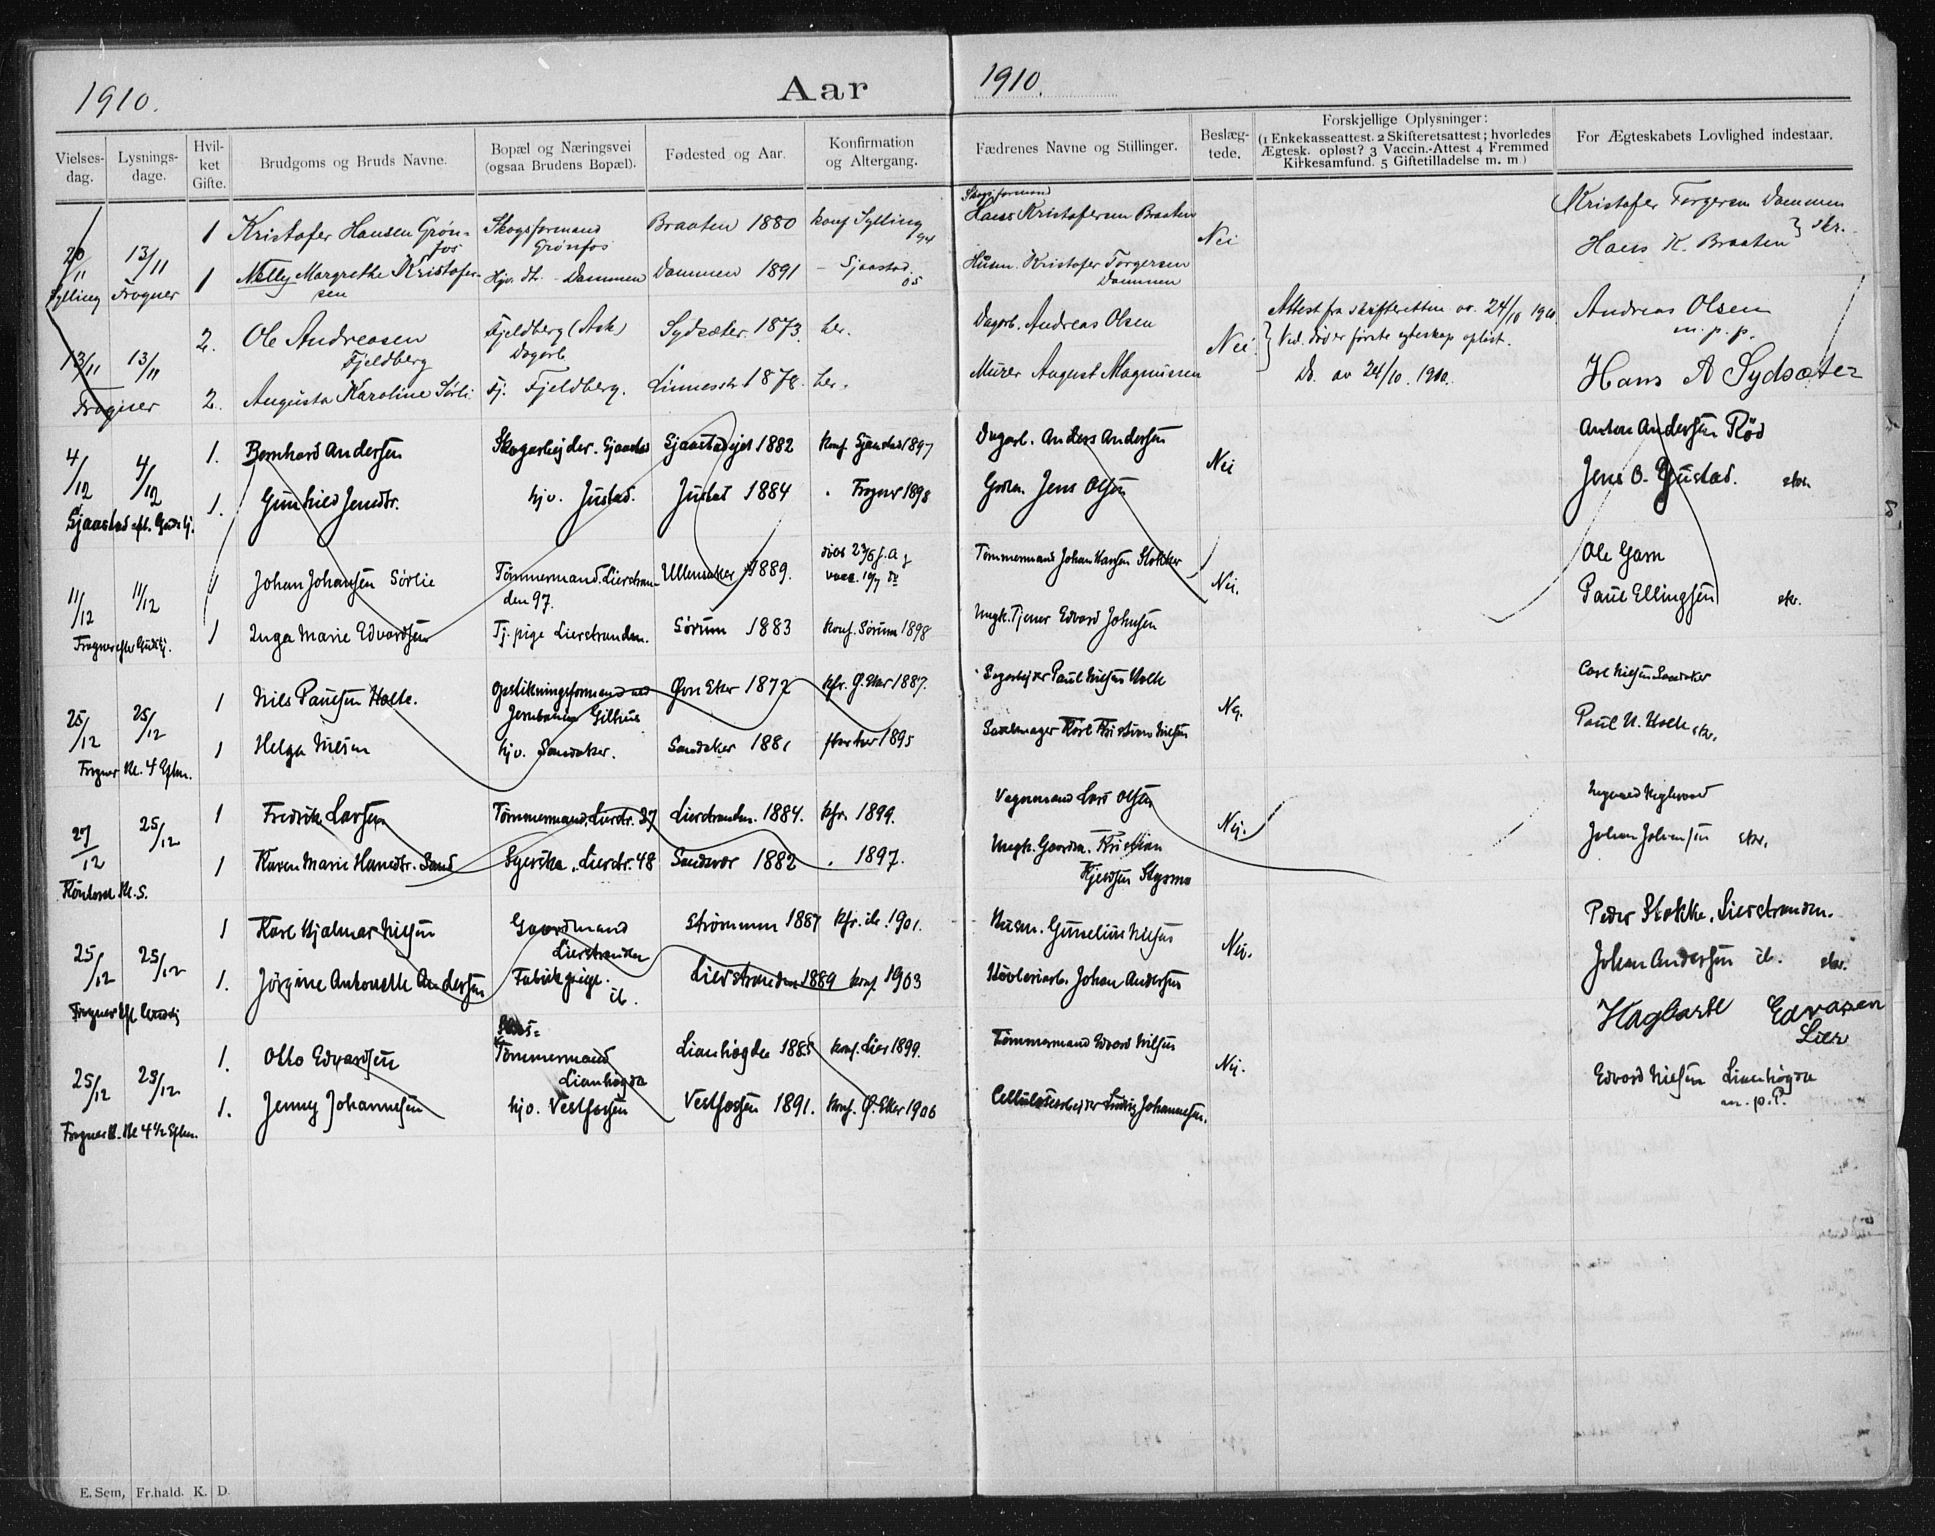 1910.
Aar
1910.
Vielses-dag.
Lysnings-dage.
Hvil-ket Gifte.
Brudgoms og Bruds Navne.
Bopæl og Næringsvei (ogsaa Brudens Bopæl).
Fødested og Aar.
Konfirmation og Altergang.
Fædrenes Navne og Stillinger.
Beslæg-tede.
Forskjellige Oplysninger: (1 Enkekasseattest. 2 Skifteretsattest; hvorledes Ægtesk. opløst? 3 Vaccin.-Attest 4 Fremmed Kirkesamfund. 5 Giftetilladelse m. m.)
For Ægteskabets Lovlighed indestaar.
20/11 Sylling 13/11 Frogner
1 Kristofer Hansen Grønfos Skogsformand Grønfos Braaten 1880 konf Sylling Skogsformand Hans Kristofersen Braaten Nei Kristofer Torgersen Dammen
Hans K. Braaten skr.
1 Nelly Margrethe Kristofersen Hjv. dt. Dammen Dammen 1891 – Sjaastad 05 Husm. Kristofer Torgersen Dammen
13/11 Frogner 13/11
2. Ole Andreasen Fjeldberg Fjeldberg (Ask) Dagarb. Sydsæter 1873. her. Dagarb. Andreas Olsen Nei Attest fra skifteretten av 24/10 1910
Ved død er første egteskap opløst.
Andreas Olsen m.p.p.
2. Augusta Karoline Sørli Fjeldberg. 1878. her. Murer August Magnussen Do. av 24/10. 1910. Hans A Sydsæter
4/12 4/12 Sjaastad eft. Gudstj.
1. Bernhard Andersen Skogarbejder. Sjaastad Sjaastadejet 1882 konf. Sjaastad 1897 Dagarb. Anders Andersen Nei Anton Andersen Rød
1. Gunhild Jensdtr. hjv. Justad. Justad 1884 Frogner 1898 Gdm. Jens Olsen Jens O. Gjustad. skr.
11/12 11/12 Frogner efter Gudstj.
1 Johan Johansen Sørlie Tømmermand. Lierstranden 97. Ullensaker 1889. Tømmermand Johan Hansen Nei. Ole Garn
1 Inga Marie Edvardsen Tj. pige Lierstranden. Sørum 1883 konf. Sørum 1898 Ungk. Tjener Edvard Johnsen Paul Ellingsen skr.
25/12 25/12 Frogner Kl. 4 Eftm.
1 Nils Paulsen Holte. Øvre Eker 1872 kfr. Ø. Eker 1887. Paul Nilsen Holte Nej. Carl Nilsen Sandaker
1 Helga Nilsen hjv. Sandaker. Sandaker 1881 1895 Sadelmager Karl Kristian Nilsen Paul N. Holte skr.
27/12 25/12 Kl. 5.
1 Fredrik Larsen Tømmermand. Lierstr. 27 Lierstranden. 1884. kfr. 1899. Vognmand Lars Olsen Nej.
1 Karen Marie Hansdtr. Sand Syerske. Lierstr. 48 Sandsvær 1882 . 1897. Ungk. Gaardm. Kristian Kjeldsen Johan Johansen skr.
25/12 25/12 Frogner
1 Karl Hjalmar Nilsen Gaardmand Lierstranden Strømmen 1887 kfr. ib. 1901. Husm. Gunelius Nilsen Nej. Peder Stokke. Lierstranden.
1. Jørgine Antonette Andersen Fabrikpige. ib. Lierstranden 1889 konf. 1903 Høvleriarb. Johan Andersen Johan Andersen ib. skr.
25/12 23/12 Frogner K. Kl 4 1/2 Eftm.
1. Otto Edvardsen Tømmermand Lianhøgda Lianhøgda 1885 konf. Lier 1899. Tømmermand Edvard Nilsen Nej. Hagbart Edvasen Lier
1. Jenny Johannesen hjv. Vestfossen Vestfossen 1891. konf. Ø. Eker 1906 Cellulosearbejder Ludvig Johannesen. Edvard Nilsen Lianhøgda m.p.P.
E. Sem, Fr.hald. K. D.